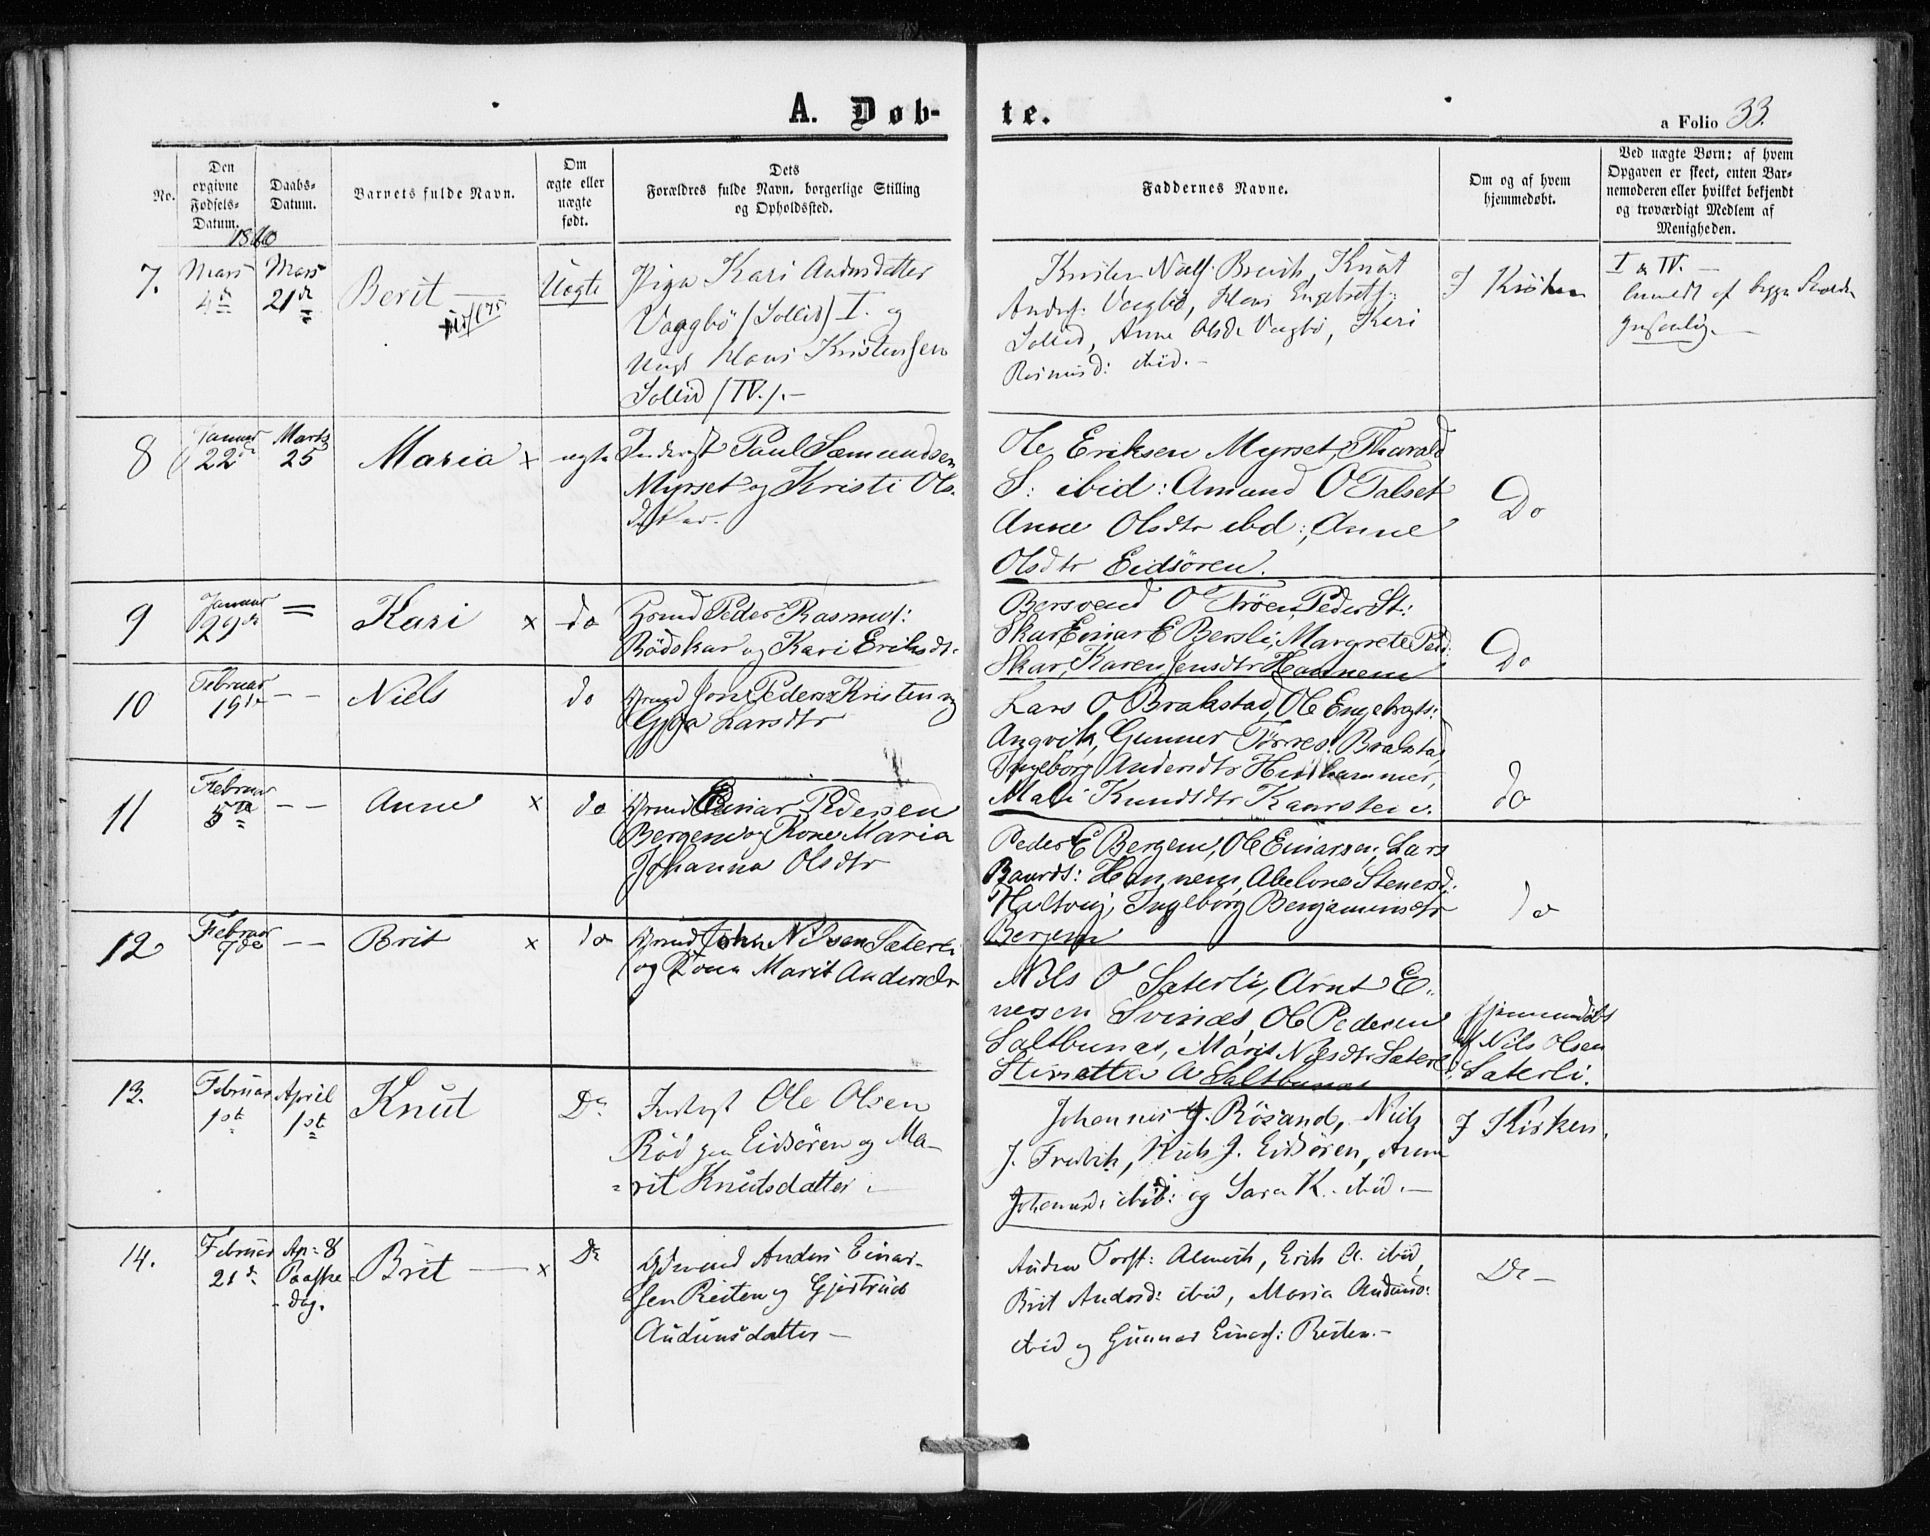 A. Døb-
te.
a Folio 33.
No.
Den
opgivne
Fødsels-
Datum.
Daabs-
Datum.
Barnets fulde Navn.
Om
ægte eller
uægte
født.
Dets
Forældres fulde Navn, borgerlige Stilling
og Opholdssted.
Faddernes Navne.
Om og af hvem
hjemmedøbt.
Ved uægte Børn: af hvem
Opgaven er skeet, enten Bar-
nemoderen eller hvilket bekjendt
og troværdigt Medlem af
Menigheden.
1860
7.
Mars
4d
Mars
21de
Berit
Uægte
Pige Kari Andersdatter
Vaagbö (Sollid) I. og
Ungk Hans Kristensen
Sollid (IV.).-
Knut
Anders: Vaagbö, Hans Engebretss:
Sollid, Anne Olsd. Vaagbö, Kari
Rasmusd: ibid.-
I Kirken
I & IV.-
8
Januar
22de
Marts
25
Maria x
ægte
Inderst Paul Sæmundsen
Myrset og Kristi Ols-
datter.
Ole Eriksen Myrset, Tharald
S: ibid: Amund O Talset
Anne Olsdtr ibd:, Anne
Olsdtr Eidsören.
Do
9
Januar
29de
=
Kari x
do
Grmd Peder Rasmus:
Rödskar og Kari Eriksdt:
Bersvend O Tröen, Peder St:
Skar Einar E Bersli, Margrete Ped:
Skar, Karen Jensdtr Hannem
Do
10
Februar
19de
- -
Niels
do
Grmd Jon Peders Kristen og
Gjøa Larsdtr
Lars O Brakstad, Ole Engebregts:
Angvik, Gunner Törres: Brakstad,
Ingeborg Andersdtr Hendhammer,
Mali Knudsdtr Kanestein.
do
11
Februar
5te
- -
Anne x
do
Grmd Einar Pedersen
Bergem og Kone Maria
Johanna Olsdtr
Peder E Bergem, Ole Einarsen, Lars
Baards: Hannem, Abelone Stenersd:
Haltvig, Ingeborg Benjaminsdtr
Bergem
do
12
Februar
7de
- -
Brit x
do
Grmd John Nilsen Sæterli
og Kone Marit Andersdr
Nils O Sæterli, Arnt E-
nersen Svinæs, Ole Pedersen
Saltbunæs, Marit Nilsdtr Sæterli
Stinetta A Saltbunæs
hjemmedöbt
af Nils Olsen
Sæterli.
13.
Februar
1st
April
1st
Knut
Do
Inderst Ole Olsen
Röd paa Eidsören og Ma-
rit Knutsdatter.
Johannes J. Rösand, Niels
J. Fredvik, Niels J. Eidsören, Anne
Johannesd: ibid: og Sara K. ibid.-
I Kirken.
14.
Februar
21d
Ap: 8
Paaske
dag.
Brit x
Do
Gdmand Anders Einar-
sen Reiten og Gjertrud
Audunsdatter-
Anders Torst: Almvik, Erik A. ibid,
Brit Andersd: ibid, Maria Audunsd:
ibid og Gunnar Einars: Reiten.-
Do-